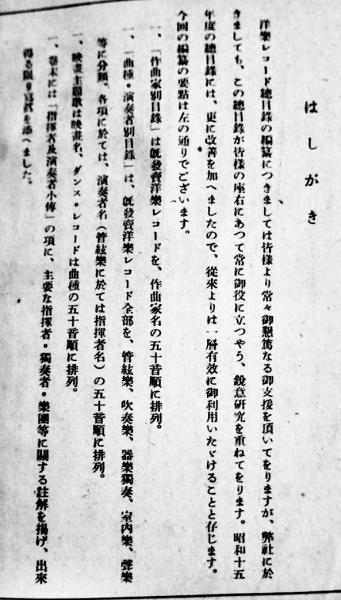 はしがき
洋樂レコード總目錄の編纂につきましては皆様より常々御懇篤なる御支援を頂いてをりますが、弊社に於
きましても、この總目錄が皆様の座右にあつて常に御役に立つやう、銳意硏究を重ねてをります。昭和十五
年度の總目錄には、更に改善を加へましたので、從來よりは一層有效に御利用いたゞけることと存じます。
今回の編纂の要點は左の通りでございます。
一、「作曲家別目錄」は旣發賣洋樂レコードを、作曲家名の五十音順に排列。
一、「曲種・演奏者別目錄」は、旣發賣洋樂レコード全部を、管絃樂、吹奏樂、器樂獨奏、室內樂、聲樂
等に分類。各項に於ては、演奏者名(管絃樂に於ては指揮者名)の五十音順に排列。
一、映畫主題歌は映畫名、ダンス・レコードは曲種の五十音順に排列。
一、卷末には「指揮者及演奏者小傳」の項に、主要な指揮者・獨奏者・樂團等に關する註解を揭げ、出來
得る限り寫眞を添へました。